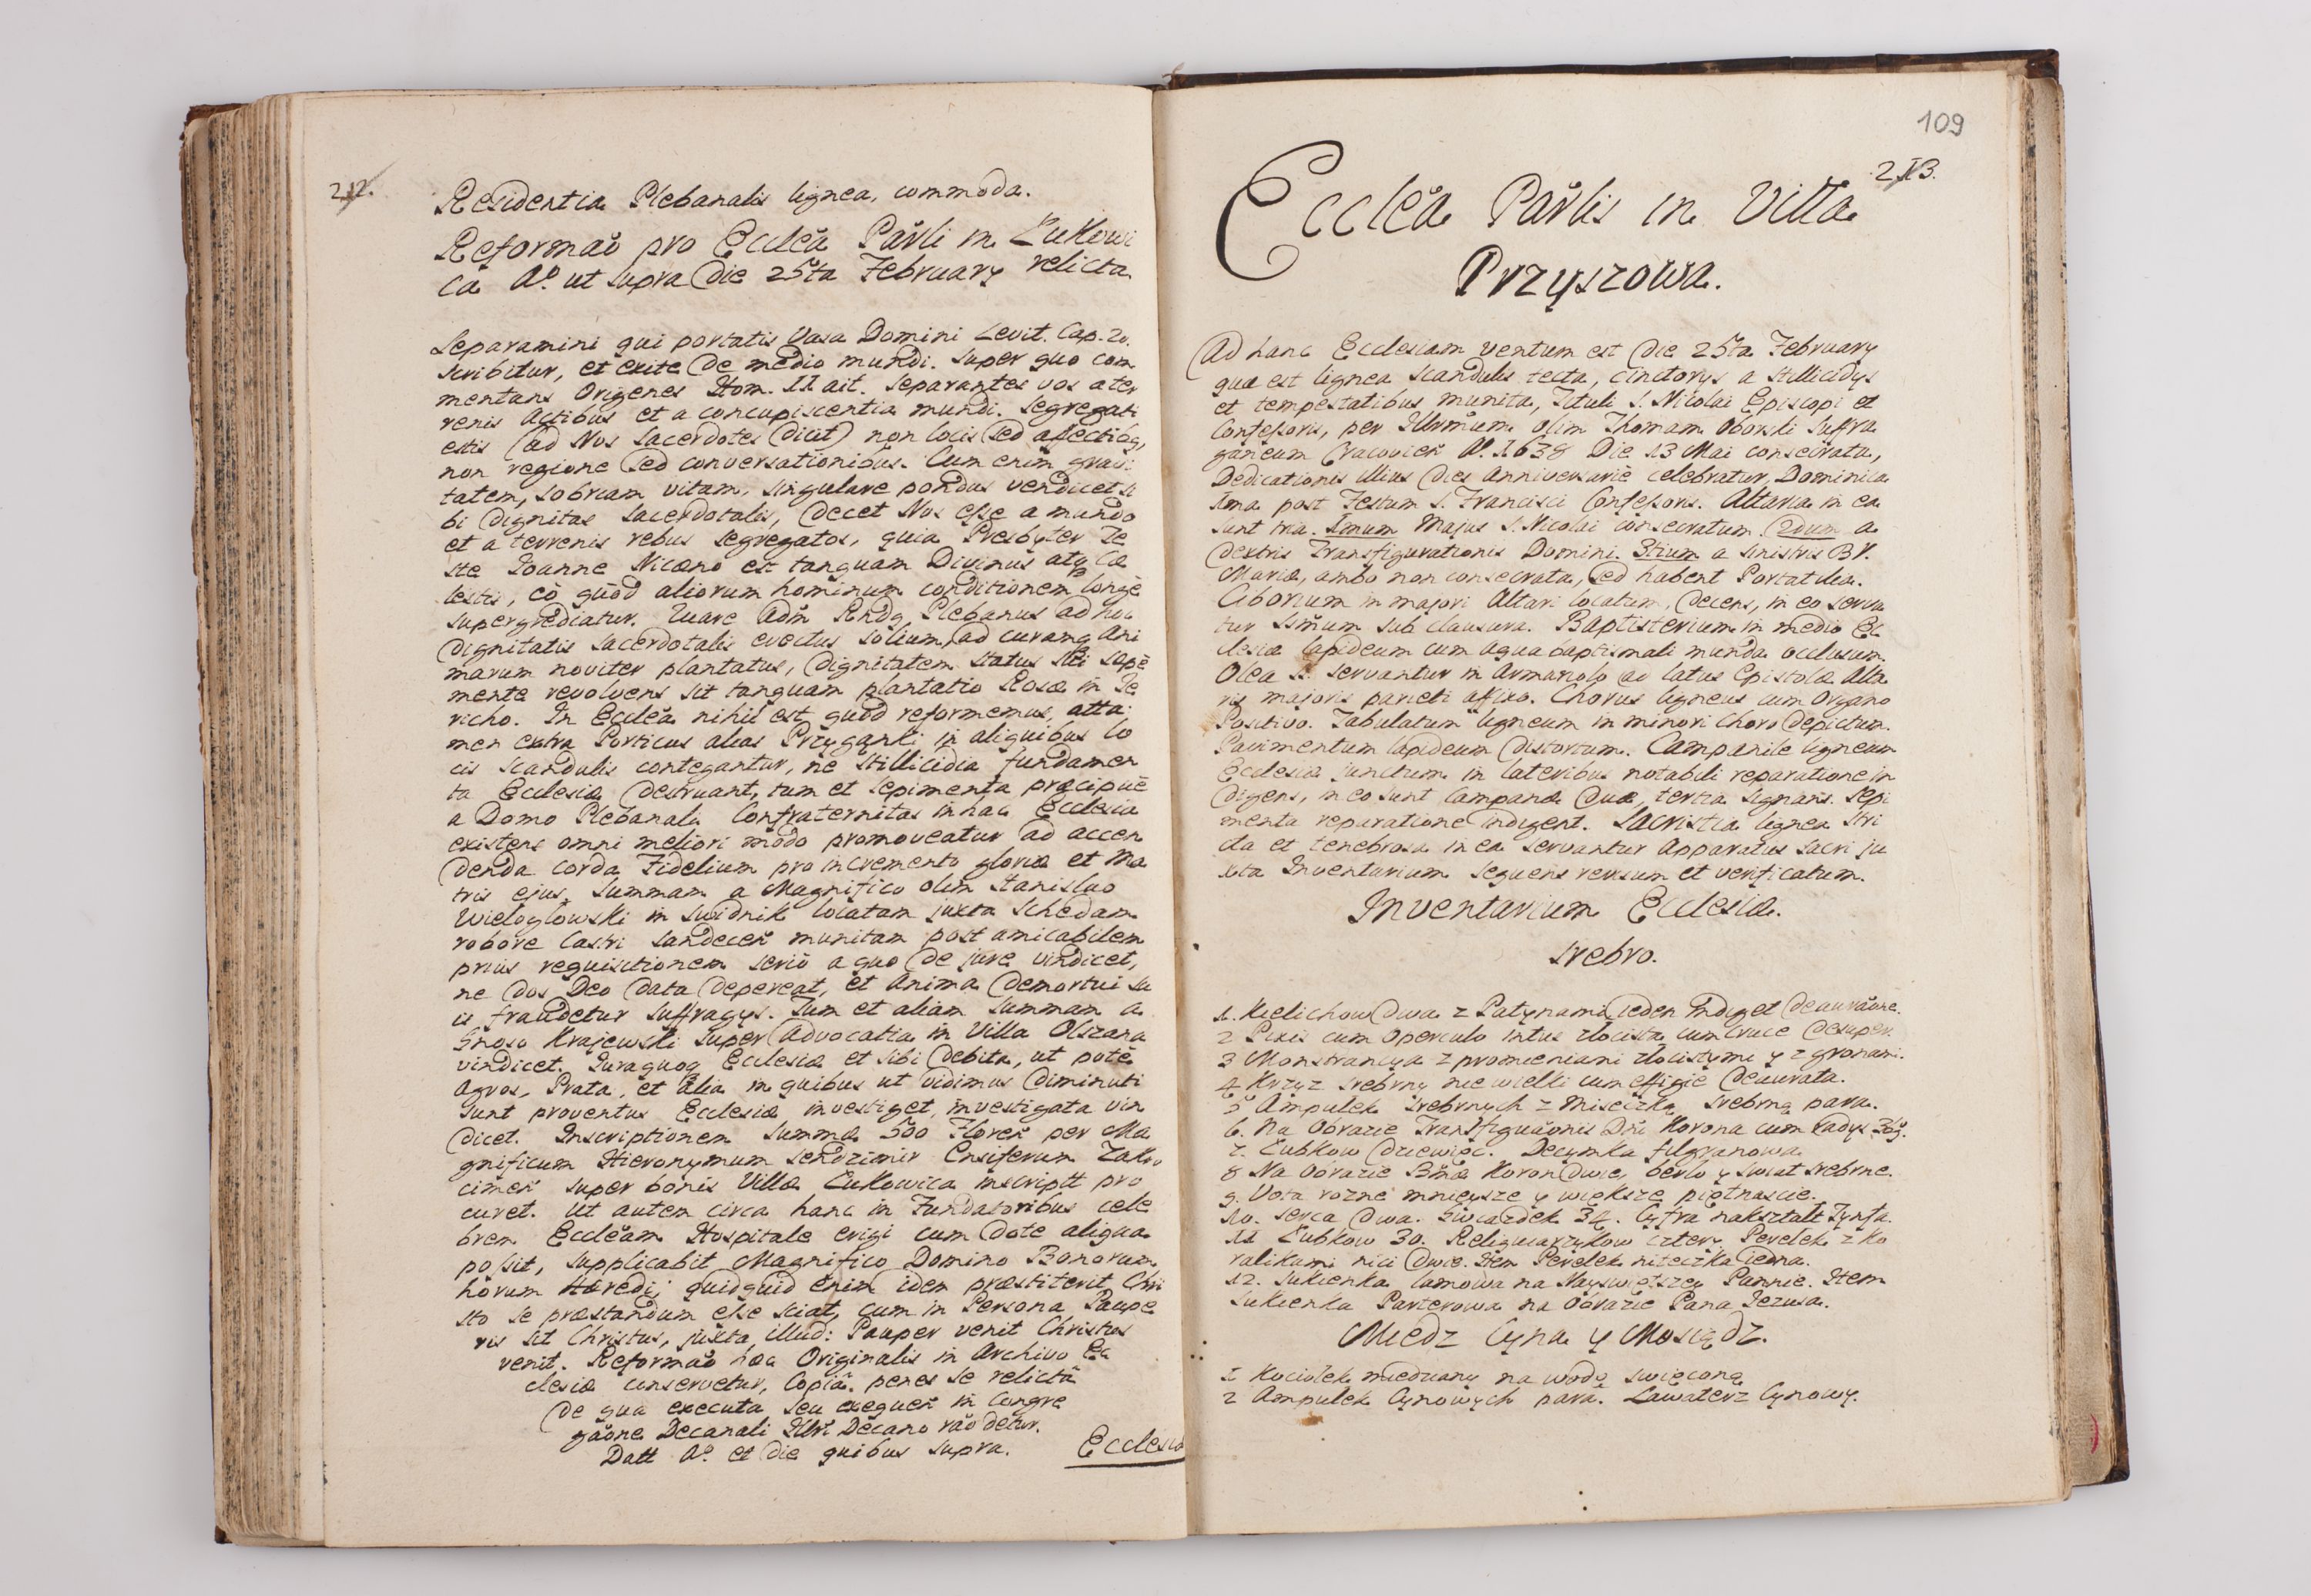 212.
Residentia Plebanalis lignea, commoda.
Reformaõ pro Ecclẽa Parłi in Łukowi
ca Aº. ut supra Die 25ta February relicta
Separamini qui portatis Vasa Domini Levit. Cap. 20.
scribitur, et exite de medio mundi. super quo com
mentans Origenes Hom. 11 ait. separantes vos a ter
renis Actibus et a concupiscentia mundi. segregati
estis (ad Nos Sacerdotes dicit) non locis sed affectibq,
non regione sed conversationibus. Cum enim gravi
tatem, sobriam vitam, singulare pondus vendicet si
bi dignitas Sacerdotalis, decet Nos esse a mundo
et a terrenis rebus segregatos, quia Presbyter Te
ste Joanne Nicæno est tanquam Divinus atq Cæ
lestis, eò quòd aliorum hominum conditionem longè
supergrediatur. Quare Adm Rndq Plebanus ad hoc
dignitatis Sacerdotalis evectus solium, ad curamq Ani
marum noviter plantatus, dignitatem status sui sæpè
mente revolvens sit tanquam plantatio Rosæ in Je
richo. In Ecclẽa nihil est quod reformemus, atta
men extra Porticus alias Przyganki in aliquibus lo
cis scandulis contegantur, ne stillicidia fundamen
ta Ecclesiæ destruant, tum et sepimenta præcipuè
a Domo Plebanali. Confraternitas in hac Ecclesia
existens omni meliori modo promoveatur ad accen
denda corda Fidelium pro incremento gloriæ et Ma
tris ejus. Summam a Magnifico olim Stanislao
Wielogłowski in Swidnik locatam juxta Schedam
robore Castri Sandecen munitam post amicabilem
prius requisitionem seriò a quo de jure vindicet,
ne dos Deo data depereat, et Anima demortui su
is fraudetur suffragys. Tum et aliam summam a
Gnoso Krajewski super Advocatia in Villa Olszana
vindicet. Juraquoq Ecclesiæ et sibi debita, ut potè
Agros, Prata, et alia in quibus ut vidimus diminuti
sunt proventus Ecclesiæ, investiget, investigata vin
dicet. Inscriptionem summæ 500 Floren per Ma
gnificum Hieronymum Sendzimir Ensiferum Zakro
cimen super bonis Villæ Łukowica inscriptt pro
curet. Ut autem circa hanc in Fundatoribus cele
brem Ecclẽam Hospitale erigi cum dote aliqua
possit, supplicabit Magnifico Domino Bonorum
horum Hæredi, quidquid enim idem præstiterit, Chri
sto se præstandum esse sciat, cum in Persona Paupe
ris sit Christus, juxta illud: Pauper venit Christus
venit. Reformaõ hæc Originalis in Archivo Ec
clesiæ conservetur, Copiâ penes se relictâ
de qua executa seu exequen in Congre
gãone Decanali Illri Decano rão detur.
Datt Aº. et Die quibus supra.
Ecclesia
109
213.
Ecclẽa Parłis in Villa
Przyszowa.
Ad hanc Ecclesiam ventum est Die 25ta February
quæ est lignea scandulis tecta, cinctorys a stillicidys
et tempestatibus munita, Tituli S. Nicolai Episcopi et
Confessoris, per Illrmum olim Thomam Oborski Suffra
ganeum Cracovien A. 1638 Die 13 Mai consecrata,
Dedicationis illius Dies Anniversariè celebratur Dominica
Ima post Festum S. Francisci Confessoris. Altaria in ea
sunt tria. Imum Majus S. Nicolai consecratum. 2dum a
dextris Transfigurationis Domini. 3tium a sinistris BV.
Mariæ, ambo non consecrata, sed habent Portatilia.
Ciborium in majori Altari locatum, decens, in eo serva
tur SSmum sub clausura. Baptisterium in medio Ec
clesiæ lapideum cum aqua baptismali munda occlusum.
Olea S. servantur in Armariolo ad latus Epistolæ Alta
ris majoris parieti affixo. Chorus ligneus cum Organo
Positivo. Tabulatum ligneum in minori Choro depictum.
Pavimentum lapideum distortum. Campanile ligneum
Ecclesiæ junctum in lateribus notabili reparatione in
digens, in eo sunt Campanæ duæ, tertia signans. Sepi
menta reparatione indigent. Sacristia lignea stri
cta et tenebrosa in ea servantur Apparatus Sacri ju
xta Inventarium sequens revisum et verificatum.
Inventarium Ecclesiæ.
Srebro.
1. Kielichow dwa z Patynami ieden indiget deaurãone.
2 Pixis cum operculo intus złocista cum cruce desuper.
3 Monstrancya z promieniami złocistymi y z gronami.
4 Krzyz srebrny niewielki cum effigie deaurata.
5 Ampułek srebrnych z Miseczką srebrną para.
6. Na Obrazie Transfigurãonis Dni Korona cum radys
7. Łubkow dziewięć. Decymka filgranowa.
8 Na Obrazie Bmæ Koron dwie, berło y swiat srebrne.
9. Vota rozne mnieysze y większe piętnascie.
10. Serca dwa. Gwiazdek 34. Cyfra nakształt Tynfa.
11 Łubkow 30. Reliquiarzykow cztery Perełek z ko
ralikami nici dwie. Item Perełek niteczka iedna.
12. Sukienka lamowa na Nayswiętszey Pannie. Item
Sukienka Parterowa na Obrazie Pana Jezusa.
Miedz Cyna y Mosiądz.
1 Kociołek miedziany na wodę swięconą
2 Ampułek Cynowych para. Lawaterz Cynowy.